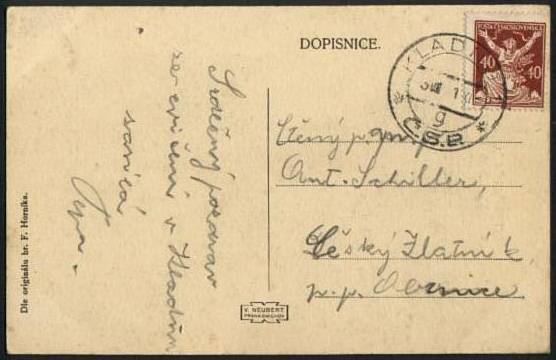 DOPISNICE.
POŠTA ČESKOSLOVENSKÁ
40 40
KLADNO
g
Č.S.R.
Srdečný pozdrav
ze cvičení v Kladně
zasílá
Pepa.
Ctěný p. pan
Ant. Schiller,
Český Zlatník
p.p. Obrnice
Dle originálu br. F. Horníka.
V. NEUBERT
PRAHA-SMÍCHOV